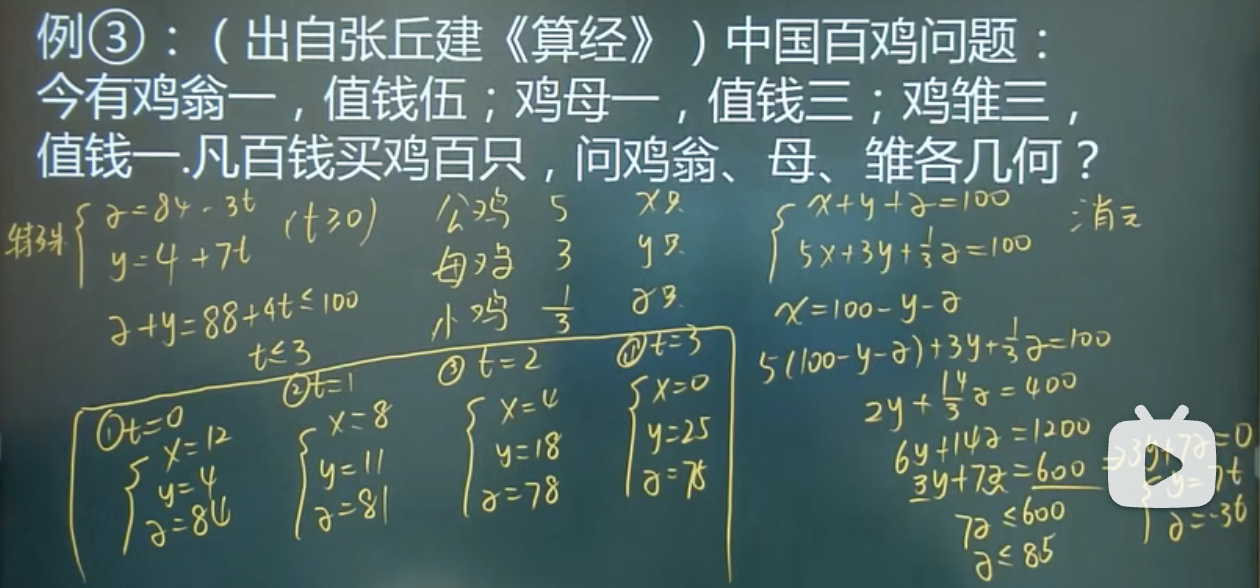 例③：（出自张丘建《算经》）中国百鸡问题：
今有鸡翁一，值钱伍；鸡母一，值钱三；鸡雏三，
值钱一.凡百钱买鸡百只，问鸡翁、母、雏各几何？
特殊 { z=84-3t
y=4+7t (t≥0)
z+y=88+4t≤100
t≤3
公鸡 5 x只
母鸡 3 y只
小鸡 1/3 z只
{ x+y+z=100
5x+3y+1/3z=100
消元
x=100-y-z
5(100-y-z)+3y+1/3z=100
2y+14/3z=400
6y+14z=1200
3y+7z=600 ⇒3y+7z=0
{ y=7t
z=-3t
7z≤600
z≤85
①t=0
{ x=12
y=4
z=84
②t=1
{ x=8
y=11
z=81
③t=2
{ x=4
y=18
z=78
④t=3
{ x=0
y=25
z=75